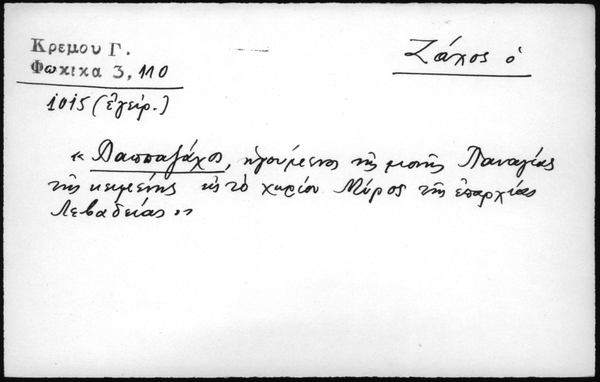 Κρεμου Γ.
Φωκικα 3, 110
1015 (ἐγειρ.)
Ζάχος ὁ
« Παππαζάχος, ἡγούμενος τῆς μονῆς Παναγίας
τῆς κειμένης εἰς τὸ χωρίον Μύρος τῆς ἐπαρχίας
Λεβαδείας »